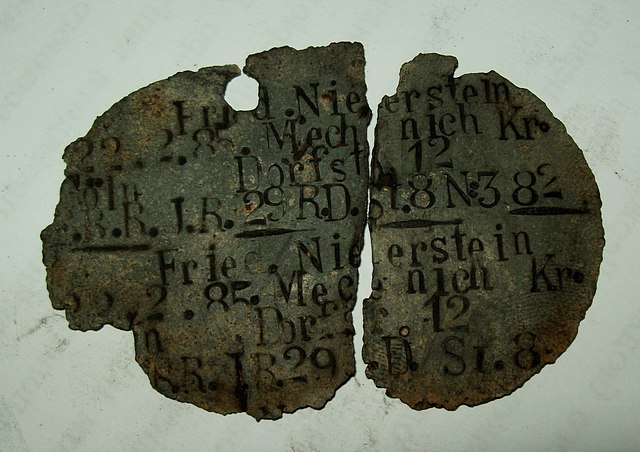 Fried. Niederstein
22.2.85. Mechernich Kr.
Dorfstr. 12
R.R. I.R. 29 R.D. St.8 N:3 82
Fried. Niederstein
22.2.85. Mechernich Kr.
Dorfstr. 12
R.R. I.R. 29 R.D. St. 8.